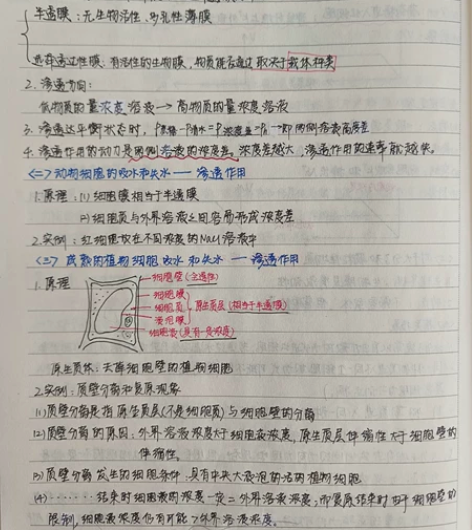 半透膜：无生物活性、多孔性薄膜
选择透过性膜：有活性的生物膜，物质能否通过取决于载体种类
2. 渗透方向：
低物质的量浓度溶液→高物质的量浓度溶液
3. 渗透达平衡状态时，
即两侧溶液高度差
4. 渗透作用的动力是两侧溶液的浓度差，浓度差越大，渗透作用的速率就越快。
<二> 动物细胞的吸水和失水——渗透作用
1. 原理：(1) 细胞膜相当于半透膜
(2) 细胞质与外界溶液之间容易形成浓度差
2. 实例：红细胞放在不同浓度的NaCl溶液中
<三> 成熟的植物细胞吸水和失水——渗透作用
1. 原理
细胞壁（全透性）
细胞膜
细胞质
液泡膜
原生质层（相当于半透膜）
细胞液（具有一定浓度）
原生质体：去除细胞壁的植物细胞
2. 实例：质壁分离和复原现象
(1) 质壁分离是指原生质层(不是细胞质)与细胞壁的分离
(2) 质壁分离的原因：外界溶液浓度大于细胞液浓度，原生质层伸缩性大于细胞壁的
伸缩性。
(3) 质壁分离发生的细胞条件：具有中央大液泡的活的植物细胞
(4) ········结束时细胞液的浓度一定=外界溶液浓度；而复原结束时由于细胞壁的
限制，细胞液浓度仍有可能>外界溶液浓度。